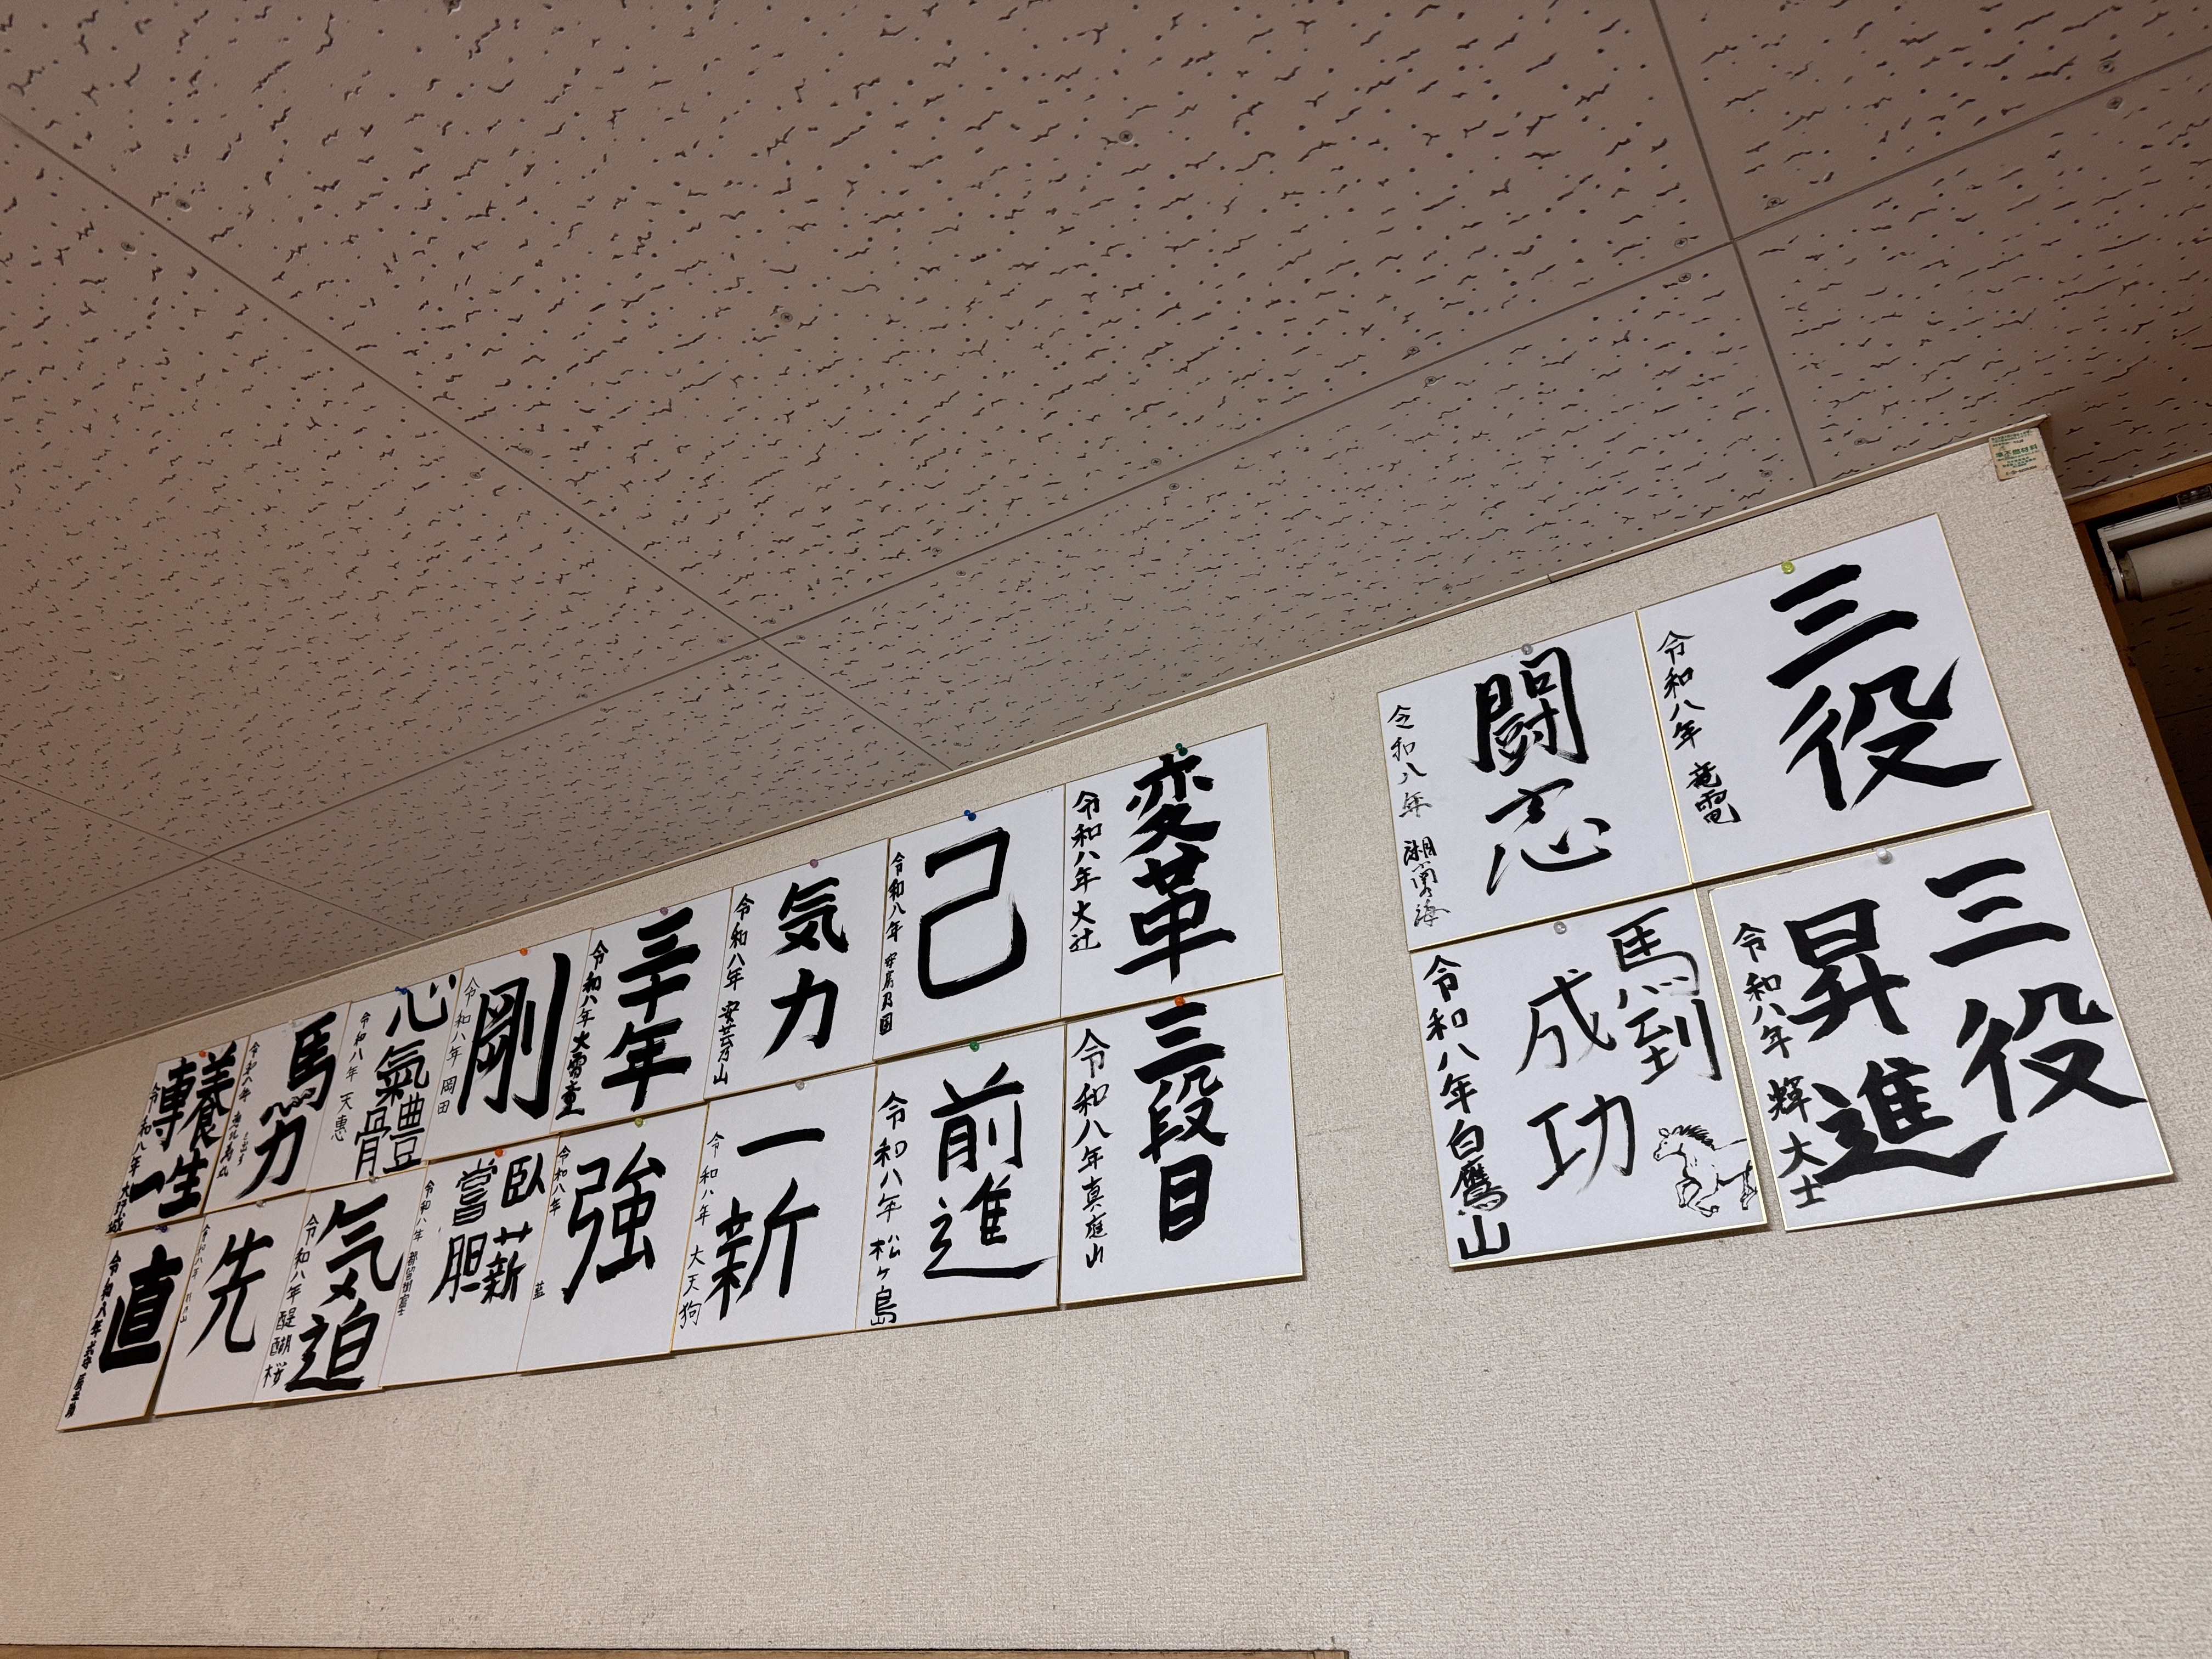 三役
令和八年 竜電
闘志
令和八年 湘南乃海
三役
昇進
令和八年 輝大士
馬到
成功
令和八年 白鷹山
変革
令和八年 大辻
己
令和八年 安房乃国
気力
令和八年 安芸乃山
三年
令和八年 大雷童
剛
令和八年 岡田
心氣體骨
令和八年 天惠
馬力
令和八年
養生
専一
令和八年
三段目
令和八年 真庭山
前進
令和八年 松ヶ島
一新
令和八年 大天狗
強
令和八年 藍
臥薪
嘗胆
令和八年
気迫
令和八年 醍醐桜
先
令和八年
直
令和八年 式守